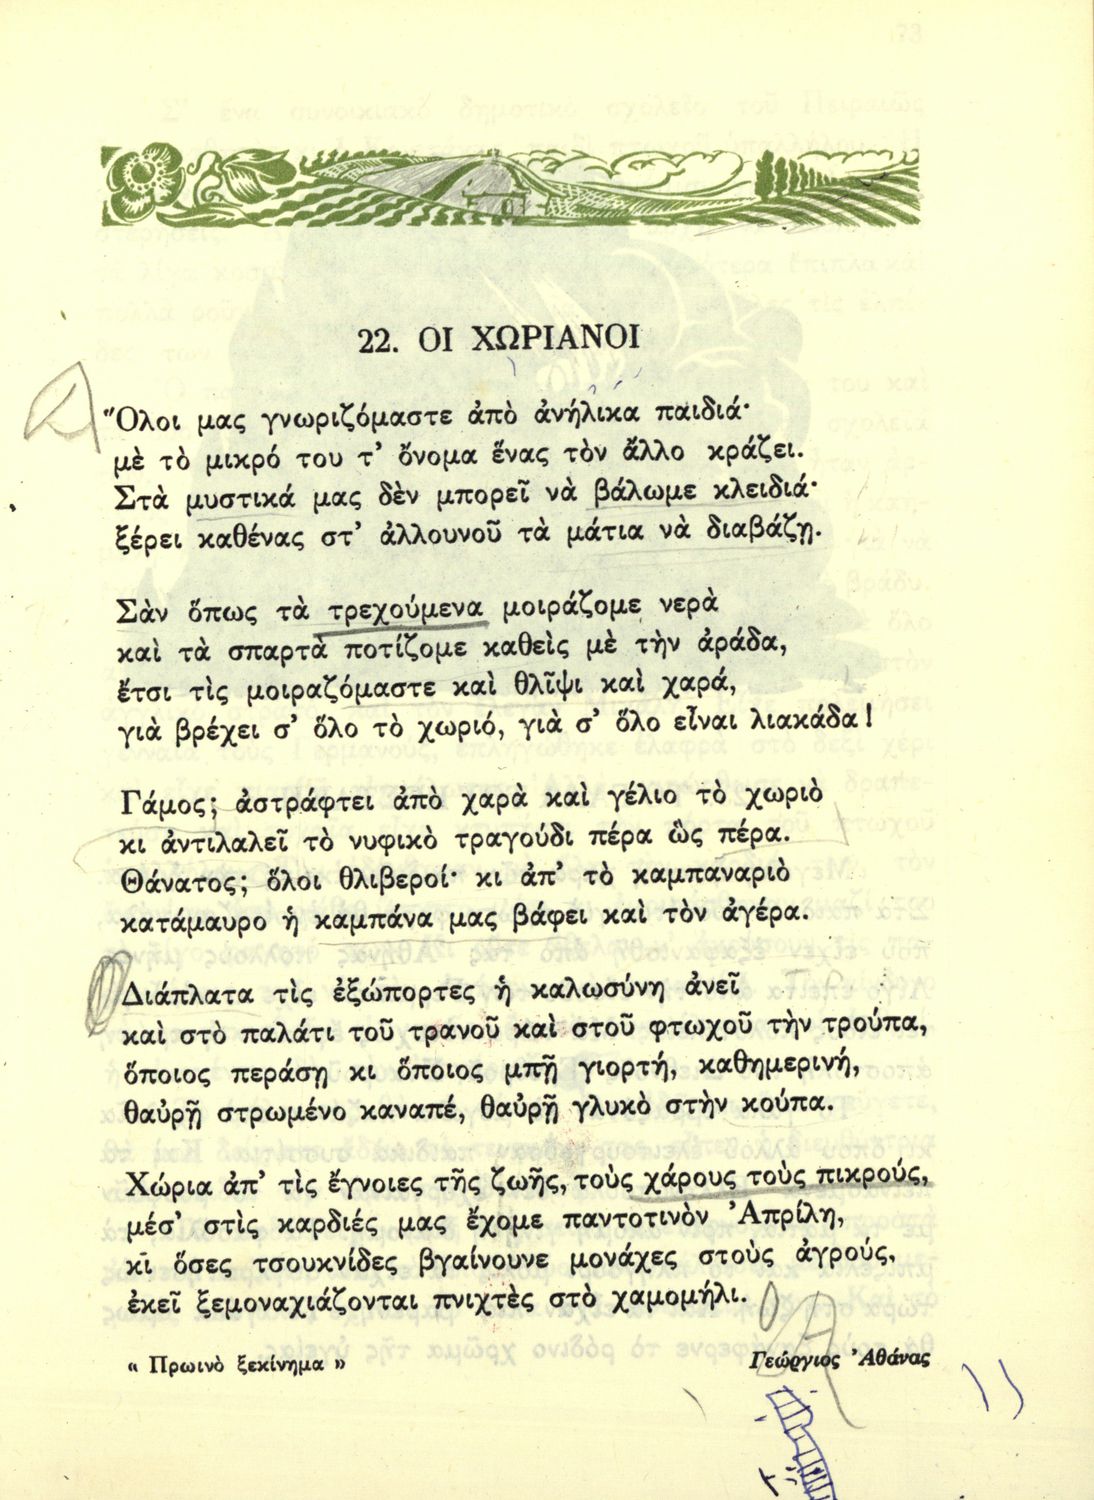 22. ΟΙ ΧΩΡΙΑΝΟΙ
Ὅλοι μας γνωριζόμαστε ἀπὸ ἀνήλικα παιδιά·
μὲ τὸ μικρό του τ' ὄνομα ἕνας τὸν ἄλλο κράζει.
Στὰ μυστικά μας δὲν μπορεῖ νὰ βάλωμε κλειδιά·
ξέρει καθένας στ' ἀλλουνοῦ τὰ μάτια νὰ διαβάζῃ.
Σὰν ὅπως τὰ τρεχούμενα μοιράζομε νερὰ
καὶ τὰ σπαρτὰ ποτίζομε καθεὶς μὲ τὴν ἀράδα,
ἔτσι τὶς μοιραζόμαστε καὶ θλῖψι καὶ χαρά,
γιὰ βρέχει σ' ὅλο τὸ χωριό, γιὰ σ' ὅλο εἶναι λιακάδα!
Γάμος; ἀστράφτει ἀπὸ χαρὰ καὶ γέλιο τὸ χωριὸ
κι ἀντιλαλεῖ τὸ νυφικὸ τραγούδι πέρα ὣς πέρα.
Θάνατος; ὅλοι θλιβεροί· κι ἀπ' τὸ καμπαναριὸ
κατάμαυρο ἡ καμπάνα μας βάφει καὶ τὸν ἀγέρα.
Διάπλατα τὶς ἐξώπορτες ἡ καλωσύνη ἀνεῖ
καὶ στὸ παλάτι τοῦ τρανοῦ καὶ στοῦ φτωχοῦ τὴν τρούπα,
ὅποιος περάσῃ κι ὅποιος μπῇ γιορτή, καθημερινή,
θαὔρῇ στρωμένο καναπέ, θαὔρῇ γλυκὸ στὴν κούπα.
Χώρια ἀπ' τὶς ἔγνοιες τῆς ζωῆς, τοὺς χάρους τοὺς πικρούς,
μέσ' στὶς καρδιές μας ἔχομε παντοτινὸν Ἀπρίλη,
κι ὅσες τσουκνίδες βγαίνουνε μονάχες στοὺς ἀγρούς,
ἐκεῖ ξεμοναχιάζονται πνιχτὲς στὸ χαμομήλι.
« Πρωινὸ ξεκίνημα »
Γεώργιος Ἀθάνας